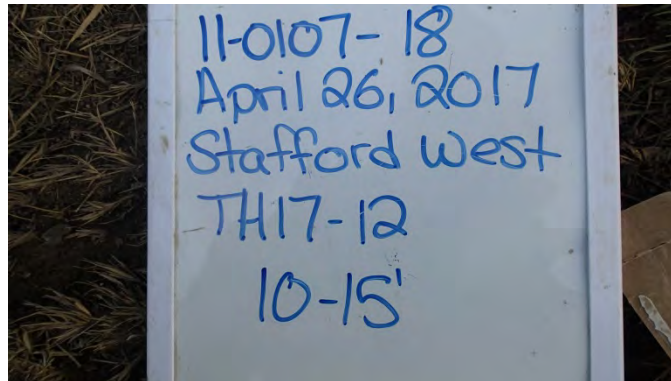 11-0107-18
April 26, 2017
Stafford West
TH17-12
10-15'